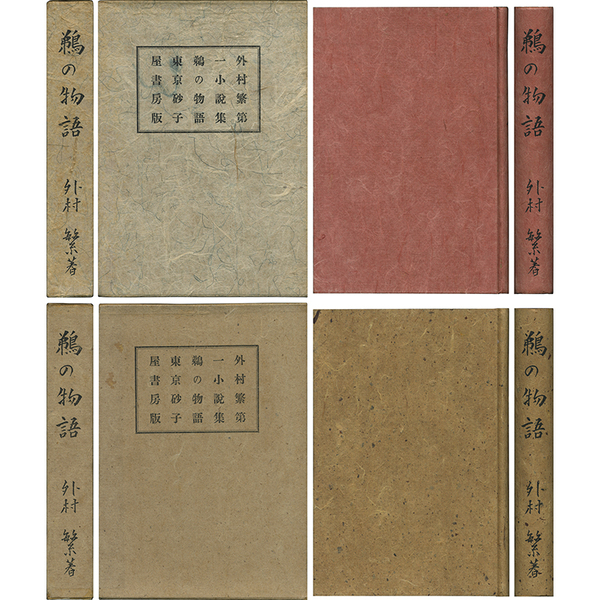 鵜の物語
外村 繁著
外村繁第
一小說集
鵜の物語
東京砂子
屋書房版
鵜の物語
外村 繁著
鵜の物語
外村 繁著
外村繁第
一小說集
鵜の物語
東京砂子
屋書房版
鵜の物語
外村 繁著